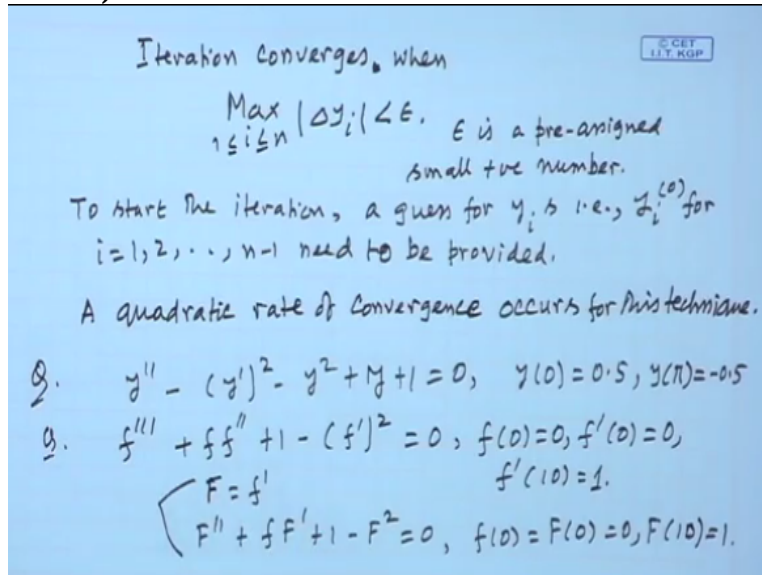 Iteration converges, when
© CET
I.I.T. KGP
Max |Δy_i| < ε.
1≤i≤n
ε is a pre-assigned
small +ve number.
To start the iteration, a guess for y_i s i.e., y_i^(0) for
i=1, 2, . . , n-1 need to be provided.
A quadratic rate of convergence occurs for this technique.
Q. y'' - (y')² - y² + y + 1 = 0, y(0) = 0.5, y(π) = -0.5
Q. f''' + ff'' + 1 - (f')² = 0, f(0)=0, f'(0)=0,
f'(10) = 1.
F = f'
F'' + fF' + 1 - F² = 0, f(0) = F(0) = 0, F(10) = 1.